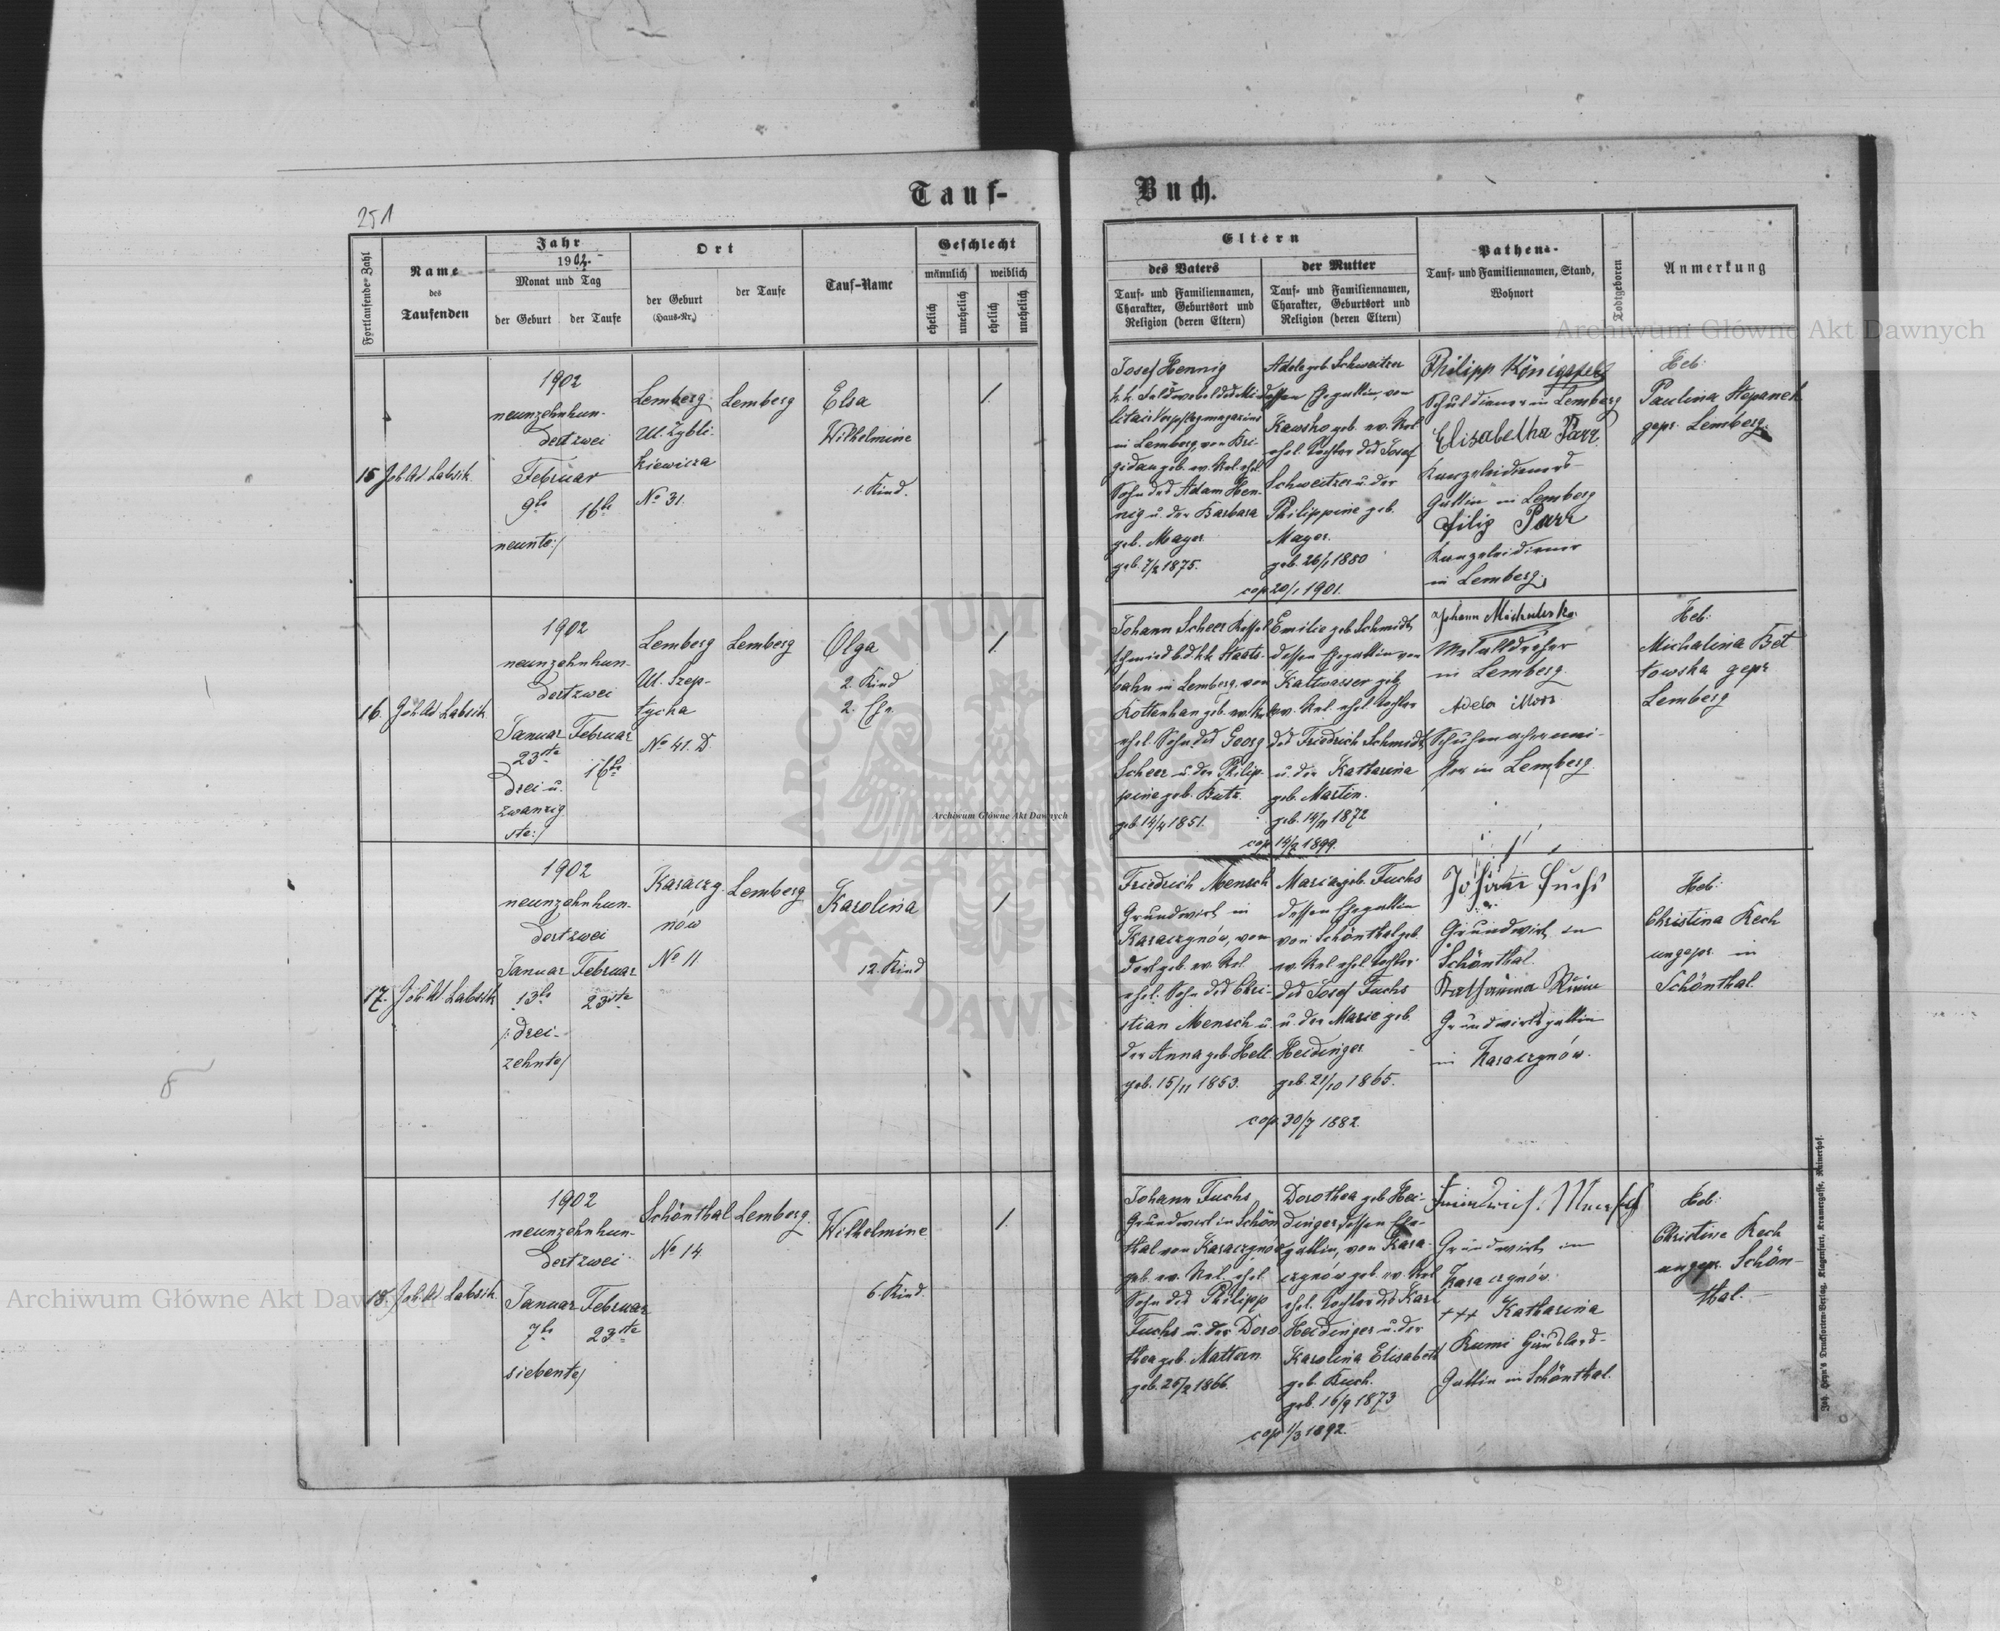 251
Tauf-
Buch.
Fortlaufende-Zahl
Name
des
Taufenden
Jahr
1902.
Monat und Tag
der Geburt
der Taufe
Ort
der Geburt
(Haus-Nr.)
der Taufe
Tauf-Name
Geschlecht
männlich
weiblich
ehelich
unehelich
ehelich
unehelich
Eltern
des Vaters
Tauf- und Familiennamen,
Charakter, Geburtsort und
Religion (deren Eltern)
der Mutter
Tauf- und Familiennamen,
Charakter, Geburtsort und
Religion (deren Eltern)
Pathen-
Tauf- und Familiennamen, Stand,
Wohnort
Todtgeboren
Anmerkung
15
1902
neunzehnhun-
dert zwei
Februar
9te
16te
neunte:/
Lemberg
Ul. Zybli-
kiewicza
No 31.
Lemberg
Elsa
Wilhelmine
1. Kind.
/
Josef Hennig
k.k. Feldwebel des Mi-
litär Verpflegsmagazins
in Lemberg, von Bri-
gidau geb. ev. Rel. ehel.
Sohn des Adam Hen-
nig u. der Barbara
geb. Mayer
geb. 7/2 1875.
Adele geb. Schweitzer
dessen Ehegattin, von
geb. ev. Rel.
ehel. Tochter des Josef
Schweitzer u. der
Philippine geb.
Mayer.
geb. 26/1 1880
cop. 20/1 1901.
Philipp Königsfeld
Schuldiener in Lemberg
Elisabetha Parr
Kanzleidieners-
Gattin in Lemberg
Filip Parr
Kanzleidiener
in Lemberg.
Heb:
Paulina Stepanek
gepr. Lemberg.
16.
1902
neunzehnhun-
dert zwei
Januar Februar
23ste
16te
drei u.
zwanzig
ste:/
Lemberg
Ul. Szep-
tycka
No 41. D
Lemberg
Olga
2. Kind
2. Ehe.
/
Johann Scheer Kessel-
schmied b.d. k.k. Staats-
bahn in Lemberg, von
Kottenhan geb. ev. Rel.
ehel. Sohn des Georg
Scheer u. der Philip-
pine geb. Butz.
geb. 14/4 1851.
Emilie geb. Schmidt
dessen Ehegattin von
Kaltwasser geb.
ev. Rel. ehel. Tochter
des Friedrich Schmidt
u. der Katharina
geb. Martin.
geb. 14/11 1872
cop. 14/2 1899.
Johann
Metalldreher
in Lemberg
Adela
Schuhmachermei-
ster in Lemberg
Heb:
Michalina
gepr.
Lemberg
17.
1902
neunzehnhun-
dert zwei
Januar Februar
13te
23ste
/:drei-
zehnte/
Karaczy-
nów
No 11
Lemberg
Karolina
12. Kind
/
Friedrich Mensch
Grundwirt in
Karaczynów, von
dort geb. ev. Rel.
ehel. Sohn des Chri-
stian Mensch u.
der Anna geb. Hell
geb. 15/11 1853.
Maria geb. Fuchs
dessen Ehegattin
von Schönthal geb.
ev. Rel. ehel. Tochter
des Josef Fuchs
u. der Marie geb.
Heidinger
geb. 21/10 1865.
cop. 30/7 1882.
Johann Fuchs
Grundwirt in
Schönthal.
Katharina
Grundwirtsgattin
in Karaczynów.
Heb:
Christina Rech
ungepr. in
Schönthal.
18.
1902
neunzehnhun-
dert zwei
Januar Februar
7te
23ste
siebente/
Schönthal
No 14
Lemberg
Wilhelmine
6. Kind.
/
Johann Fuchs
Grundwirt in Schön-
thal von Karaczynów
geb. ev. Rel. ehel.
Sohn des Philipp
Fuchs u. der Doro-
thea geb. Mattern
geb. 26/2 1866.
Dorothea geb. Hei-
dinger, dessen Ehe-
gattin, von Kara-
czynów geb. ev. Rel.
ehel. Tochter des Karl
Heidinger u. der
Karolina Elisabeth
geb. Buch.
geb. 16/9 1873
cop. 1/3 1892.
Friedrich Mensch
Grundwirt in
Karaczynów.
+++ Katharina
Gattin in Schönthal.
Heb:
Christine Rech
ungepr. Schön-
thal.
Archiwum Główne Akt Dawnych
Archiwum Główne Akt Dawnych
Archiwum Główne Akt Dawnych
ARCHIWUM
AKT DAWN